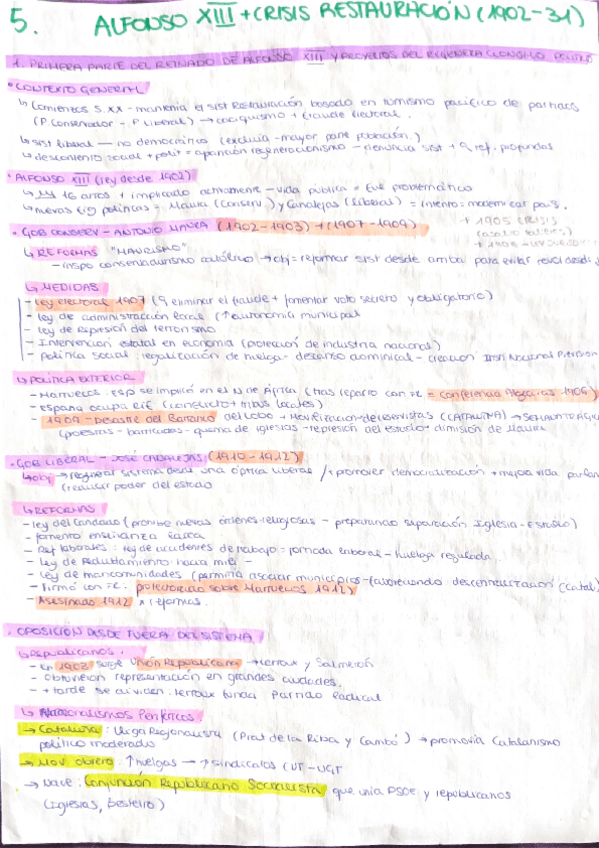 5. ALFONSO XIII + CRISIS RESTAURACIÓN (1902-31)
1. PRIMERA PARTE DEL REINADO DE ALFONSO XIII Y PROYECTOS DE REGENERACIONISMO POLÍTICO
• CONTEXTO GENERAL
↳ Comienzos S. XX - mantenía el sist Restauración basado en turnismo pacífico de partidos
(P. Conservador - P. Liberal) → caciquismo + fraude electoral.
↳ sist liberal — no democrático (excluía - mayor parte población.)
↳ descontento social + polít = aparición regeneracionismo - denuncia sist + ref. profundas
• ALFONSO XIII (rey desde 1902)
↳ 16 años + implicado activamente - vida pública = problemático
↳ nuevas fig políticas = Maura (Conserv) y Canalejas (Liberal) = intento: modernizar país.
• GOB CONSERV - ANTONIO MAURA (1902-1903) + (1907-1909)
+ 1905 CRISIS
↳ REFORMAS "MAURISMO"
- inspo conservadurismo católico → obj = reformar sist desde arriba para evitar revol desde
↳ MEDIDAS
- ley electoral 1907 (eliminar el fraude + fomentar voto secreto y obligatorio)
- ley de administracción local (↑ autonomía municipal
- ley de represión del terrorismo
- Intervención estatal en economía (protección de industria nacional)
- política social: legalización de huelga - descanso dominical - creación Inst Nacional Previsión
↳ POLÍTICA EXTERIOR
- Marruecos: esp se implicó en el N de África (tras reparto con FR = conferencia Algeciras 1906)
- España ocupa Rif (conflicto + tribus locales)
- 1909 - Desastre del Barranco del Lobo + Movilización de reservistas (CATALUÑA) →
(protestas - barricadas - quema de iglesias - represión del estado + dimisión de Maura
• GOB LIBERAL - JOSÉ CANALEJAS (1910-1912)
↳ obj → regenerar sistema desde una óptica liberal / + promover democratización + mejora vida
(reducir poder del estado
↳ REFORMAS
- ley del Candado (prohíbe nuevas órdenes religiosas - preparando separación Iglesia - Estado)
- fomento enseñanza laica
- Ref laborales: ley de accidentes de trabajo - jornada laboral - huelga regulada
- Ley de Reclutamiento
- Ley de mancomunidades (permitía asociar municipios - favoreciendo descentralización (Catal)
- Firmó con FR. protectorado sobre Marruecos 1912)
- Asesinado 1912 x reformas.
• OPOSICIÓN DESDE FUERA DEL SISTEMA
↳ Republicanos.
- En 1903 surge Unión Republicana → Lerroux y Salmerón
- Obtuvieron representación en grandes ciudades.
- + tarde se dividen: Lerroux funda Partido Radical
↳ Nacionalismos Periféricos
→ Cataluña: lliga Regionalista (Prat de la Riba y Cambó) → promovía Catalanismo
político moderado
→ Mov. obrero: ↑ huelgas → ↑ sindicatos - UGT
→ Nace: Conjunción Republicano Socialista que unía PSOE y republicanos
(Iglesias, Besteiro)